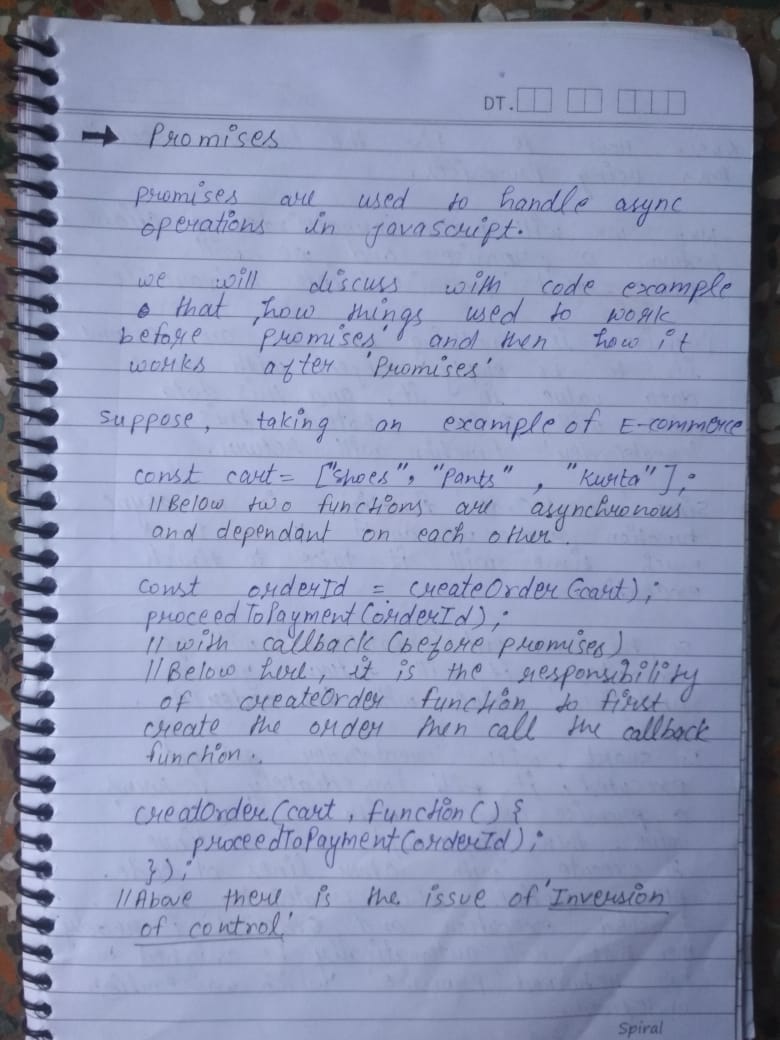 DT.
→ Promises
promises are used to handle async
operations in javascript.
we will discuss with code example
that, how things used to work
before promises' and then how it
works after 'Promises'
suppose, taking an example of E-commerce
const cart = ["Shoes", "Pants", "Kurta"];
//Below two functions are asynchronous
and dependant on each other.
const orderId = createOrder(cart);
proceedToPayment(orderId);
// with callback (before promises)
//Below here, it is the responsibility
of createOrder function to first
create the order then call the callback
function.
creatOrder(cart, function() {
proceedToPayment(orderId);
});
//Above there is the issue of 'Inversion
of control'
Spiral